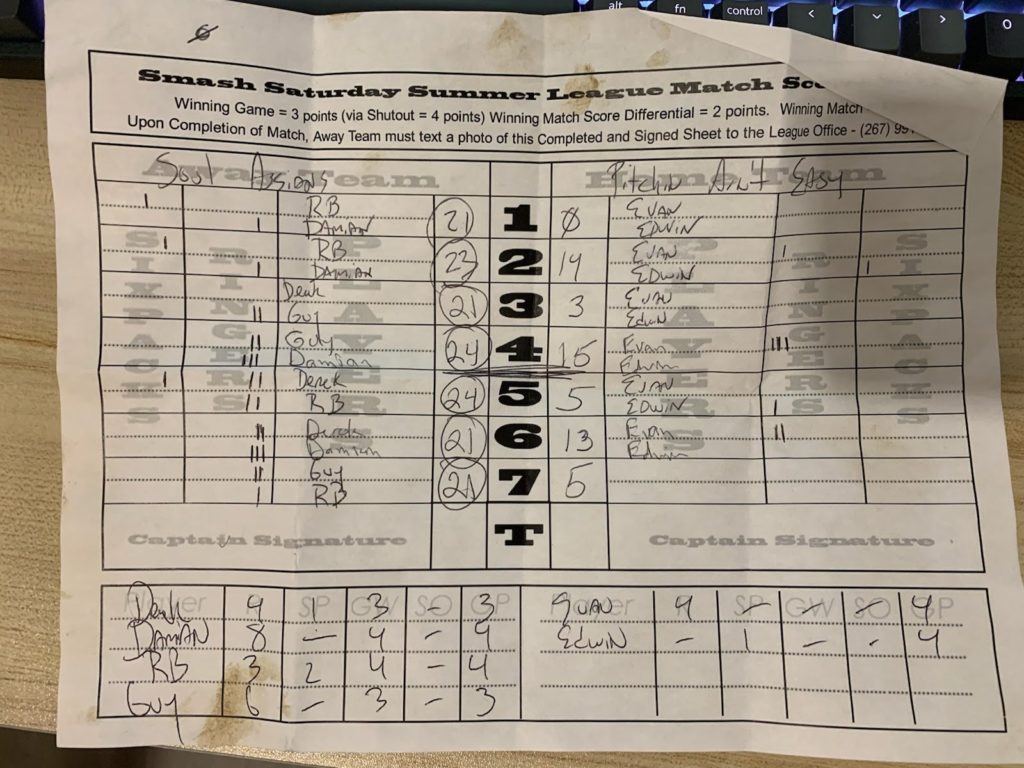 alt fn control < ⌄ > O
Smash Saturday Summer League Match Sc
Winning Game = 3 points (via Shutout = 4 points) Winning Match Score Differential = 2 points. Winning Match
Upon Completion of Match, Away Team must text a photo of this Completed and Signed Sheet to the League Office - (267) 99
Away Team Home Team
Pitchin Ain't Easy
SIX PACKS RINGERS PLAYERS PLAYERS RINGERS SIX PACKS
| RB 21 1 0 EVAN
| DAMIAN EDWIN
| RB 23 2 14 EVAN |
| DAMIAN EDWIN |
Derek 21 3 3 EVAN
|| Guy Edwin
|| Guy 24 4 15 Evan |||
||| Damian Edwin
| || Derek 24 5 5 EVAN
|| RB EDWIN |
|| Derek 21 6 13 Evan ||
||| Damian Edwin
|| Guy 21 7 5
| RB
T
Captain Signature Captain Signature
Player SP GW SO GP Player SP GW SO GP
Derek 4 1 3 - 3 EVAN 4 - - - 4
DAMIAN 8 - 4 - 4 EDWIN - 1 - - 4
RB 3 2 4 - 4
Guy 6 - 3 - 3